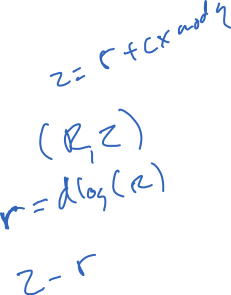 z = r + cx mod q
(R, z)
r = dlog(R)
z - r